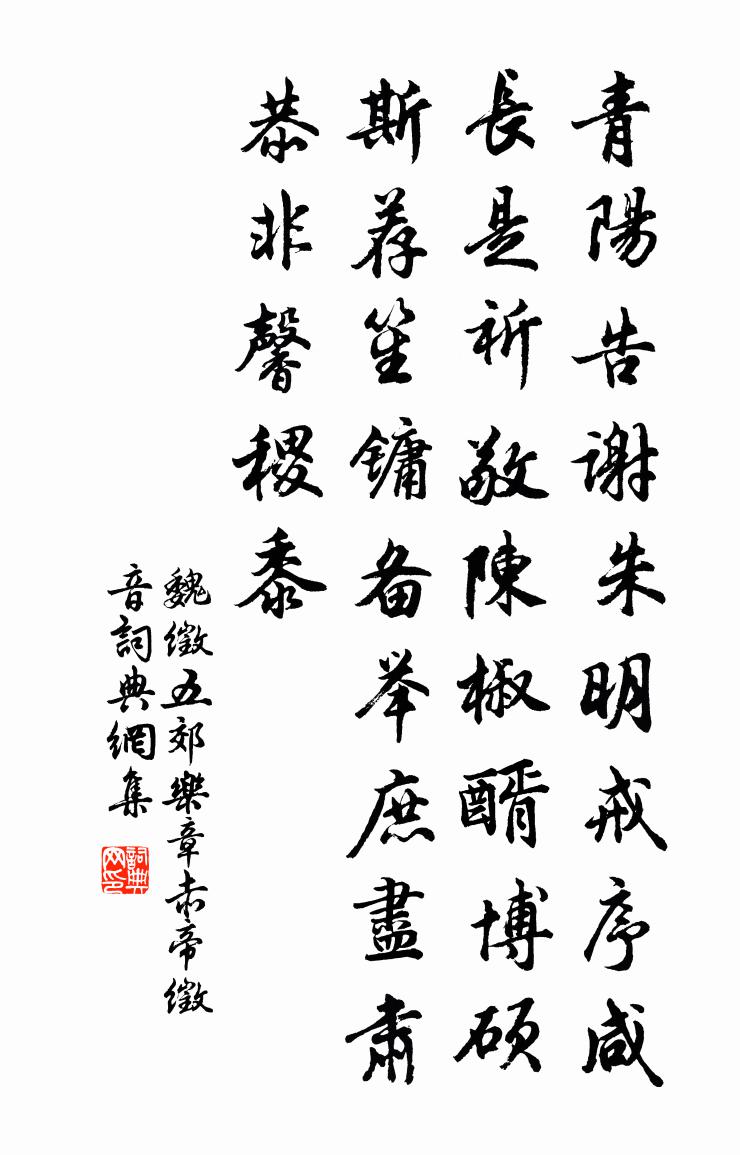 青陽告謝朱明戒序咸
長是祈敬陳椒醑博碩
斯荐笙鏞备举庶盡肅
恭非馨稷黍
魏徵五郊樂章赤帝徵
音詞典網集
詞典
网印